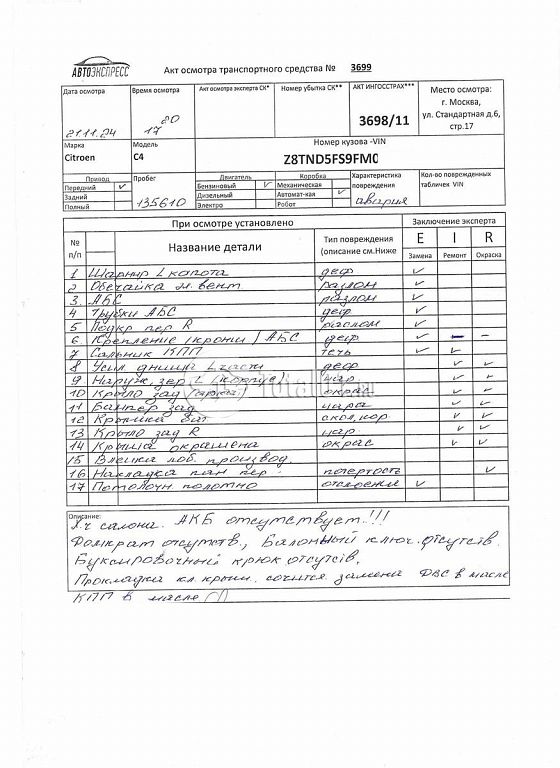 АВТОЭКСПРЕСС
Акт осмотра транспортного средства № 3699
Дата осмотра Время осмотра Акт осмотра эксперта СК* Номер убытка СК** АКТ ИНГОССТРАХ*** Место осмотра:
г. Москва,
21.11.24 17 20 3698/11 ул. Стандартная д.6,
стр.17
Марка Модель Номер кузова -VIN
Citroen C4 Z8TND5FS9FM0
Привод Пробег Двигатель Коробка Характеристика повреждения Кол-во поврежденных табличек VIN
Передний ✓ 135610 Бензиновый ✓ Механическая авария
Задний Дизельный Автомат-кая ✓
Полный Электро Робот
При осмотре установлено Заключение эксперта
№ п/п Название детали Тип повреждения (описание см.Ниже E I R
Замена Ремонт Окраска
1 Шарнир L капота деф ✓
2 Обечайка м. вент разлом ✓
3. АБС разлом ✓
4 Трубки АБС деф ✓
5 Подкр пер R разлом ✓
6. Крепление (крошт) АБС деф ✓ – –
7 Сальник КПП течь ✓ ✓
8 Усил днища L части деф ✓ ✓
9 Наруж. зер L (корпус) цар ✓ ✓
10 Крыло зад (арка) окрас ✓ ✓
11 Бампер зад цара ✓ ✓
12 Крышка баг скол, кор ✓ ✓
13 Крыло зад R цар ✓ ✓
14 Крыша окрашена окрас ✓ ✓
15 Вклейка лоб. производ.
16 Накладка пан пер потертость ✓
17 Потолочн полотно отслоение ✓
Описание:
Х.ч салона. АКБ отсутствует!!!
Домкрат отсутств, Балонный ключ отсутств.
Буксировочный крюк отсутсв.
Прокладка кл. крыш. сочится замена ДВС в масле
КПП в масле